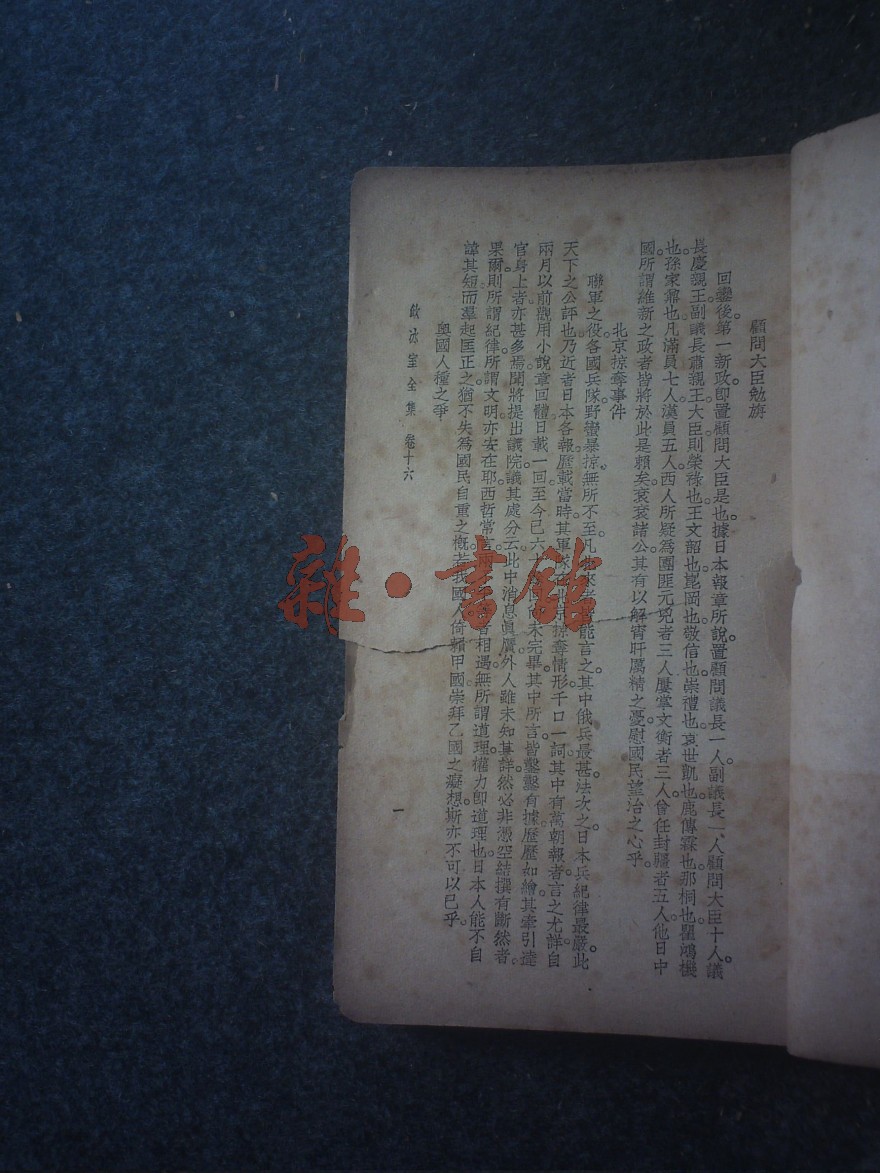 顧問大臣勉旃
回鑾後第一新政卽置顧問大臣是也據日本報章所說置顧問議長一人副議長一人顧問大臣十人議
長慶親王副議長肅親王大臣則榮祿也王文韶也崑岡也敬信也崇禮也袁世凱也鹿傳霖也那桐也瞿鴻機
也孫家鼐也凡滿員七人漢員五人西人所疑爲團匪元兇者三人屢掌文衡者三人曾任封疆者五人他日中
國所謂維新之政者皆將於此是賴矣袞袞諸公其有以解宵旰厲精之憂慰國民望治之心乎
北京掠奪事件
聯軍之役各國兵隊野蠻暴掠無所不至凡 能言之其中俄兵最甚法次之日本兵紀律最嚴此
天下之公評也乃近者日本各報歷載當時其軍隊 掠奪情形千口一詞其中有萬朝報者言之尤詳自
兩月以前觀用小說章回體日載一回至今已六十 尙未完畢其中所言皆鑿鑿有據歷歷如繪其牽引達
官身上者亦甚多揚聞將提出議院議其處分云此中消息眞贋外人雖未知其詳然必非憑空結撰有斷然者
果爾則所謂紀律所謂文明亦安在耶西哲常言 相遇無所謂道理權力卽道理也日本人能不自
諱其短而羣起匡正之猶不失爲國民自重之慨若我國人倚賴甲國崇拜乙國之癡想斯亦不可以已乎
奧國人種之爭
飮冰室全集 卷十六
一
雜·書館